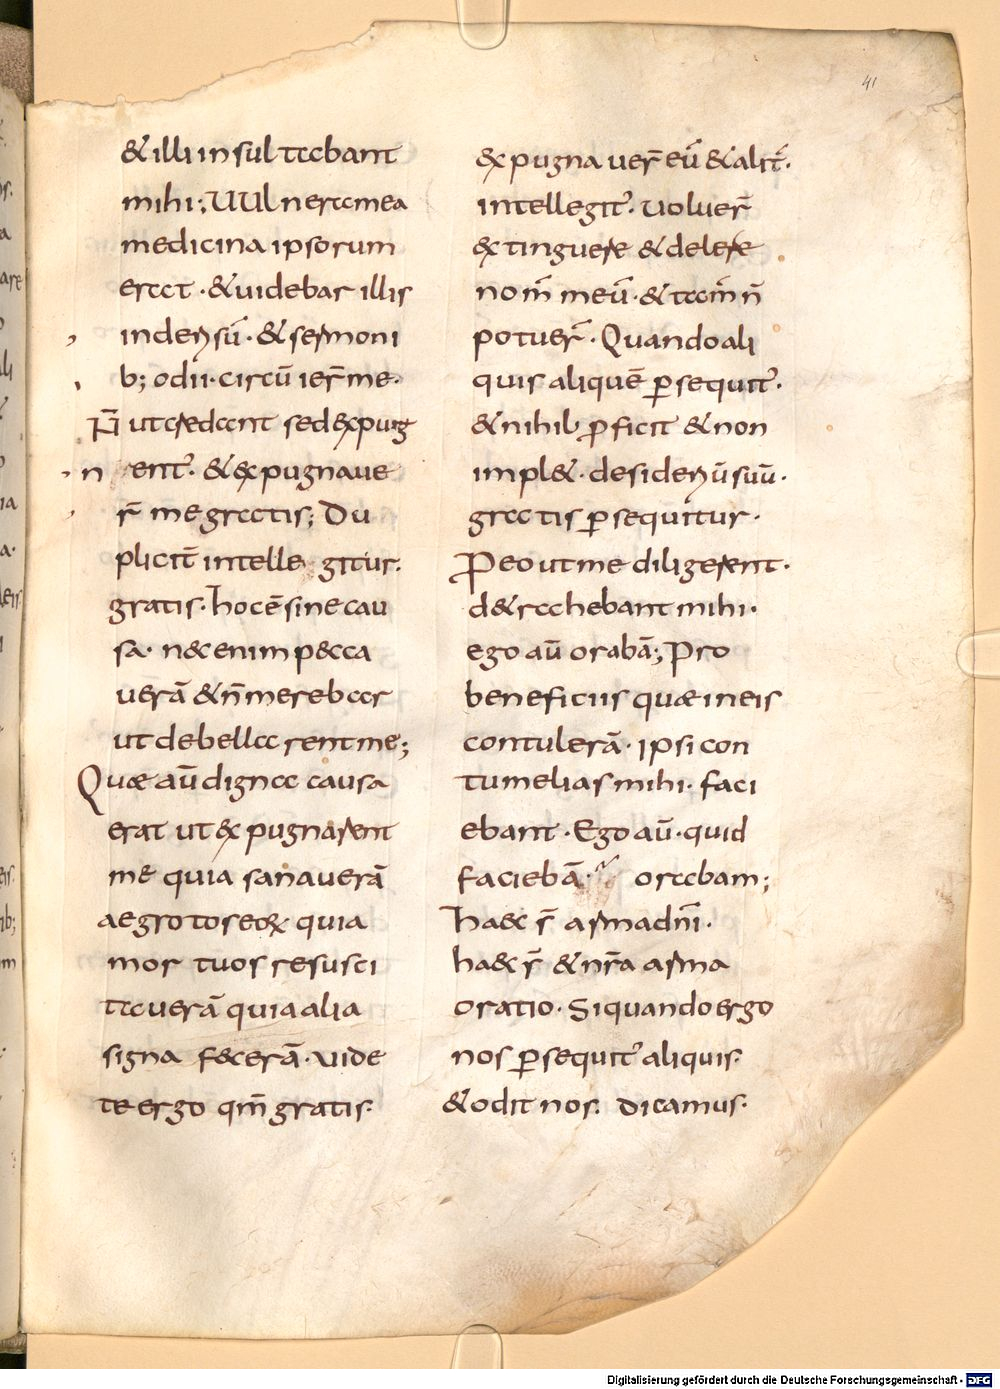 41
& illi insultabant
mihi; UUlnera mea
medicina ipsorum
erat · & uidebar illis
inderisū · & sermoni
b; odii · circū ier̄ me ·
N̄ ut credant sed expug
nent̄ · & expugnaue
r̄ me gratis; Du
plicit̄ intelle gitur.
gratis · hoc ē sine cau
sa · nec enim pecca
uerā & n̄ merebar
ut debellarent me;
Quae aū digna causa
erat ut expugnarent
me quia sanauerā
aegrotos eorꝝ quia
mortuos resusci
tauerā quia alia
signa fecerā · uide
te ergo qm̄ gratis ·
expugnauer̄ eū & alit̄ ·
intellegit̄ · Uoluer̄
extinguere & delere
nom̄ meū · & tam̄ n̄
potuer̄ · Quando ali
quis aliquē ꝑsequit̄ ·
& nihil ꝓficit & non
impl& · desideriū suū ·
gratis ꝑsequitur ·
Peo ut me diligerent ·
d&rahebant mihi ·
ego aū orabā; Pro
beneficiis quae in eis
contulerā · ipsi con
tumelias mihi · faci
ebant · Ego aū · quid
faciebā · orabam;
haec s̄ arma dn̄i ·
haec s̄ & nr̄a arma
oratio · Si quando ergo
nos ꝑsequit̄ aliquis ·
& odit nos · dicamus ·
Digitalisierung gefördert durch die Deutsche Forschungsgemeinschaft · DFG